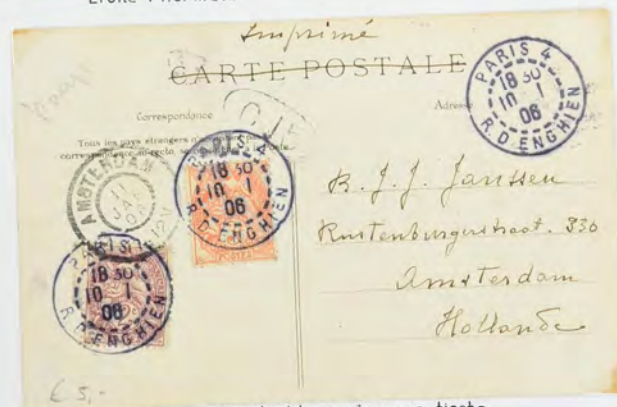 Imprimé
CARTE POSTALE
Correspondance
Adresse
Tous les pays étrangers n'
correspondance au recto se
Poste.
PARIS 4
18 30
10 - 1
06
R. D'ENGHIEN
AMSTERDAM
11
JA
12V
PARIS 4
18 30
10 - 1
06
R. D'ENGHIEN
POSTES
PARIS
18 30
10 - 1
06
R. D'ENGHIEN
R. J. J. Janssen
Rustenburgerstraat. 330
Amsterdam
Hollande
€ 5,-